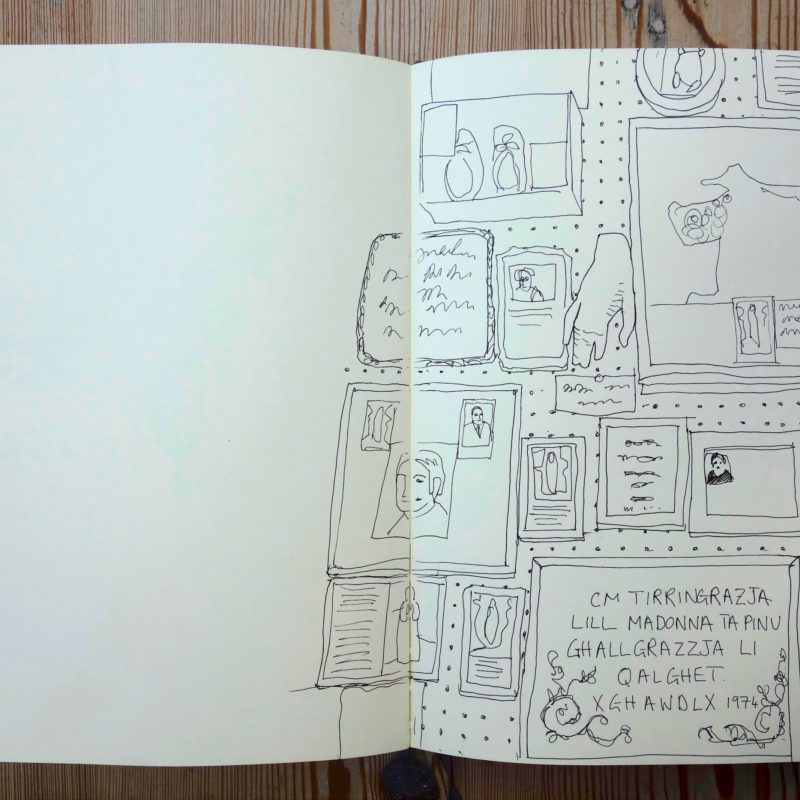 CM TIRRINGRAZJA
LILL MADONNA TA PINU
GHALLGRAZZJA LI
QALGHET.
XGHAWDLX 1974